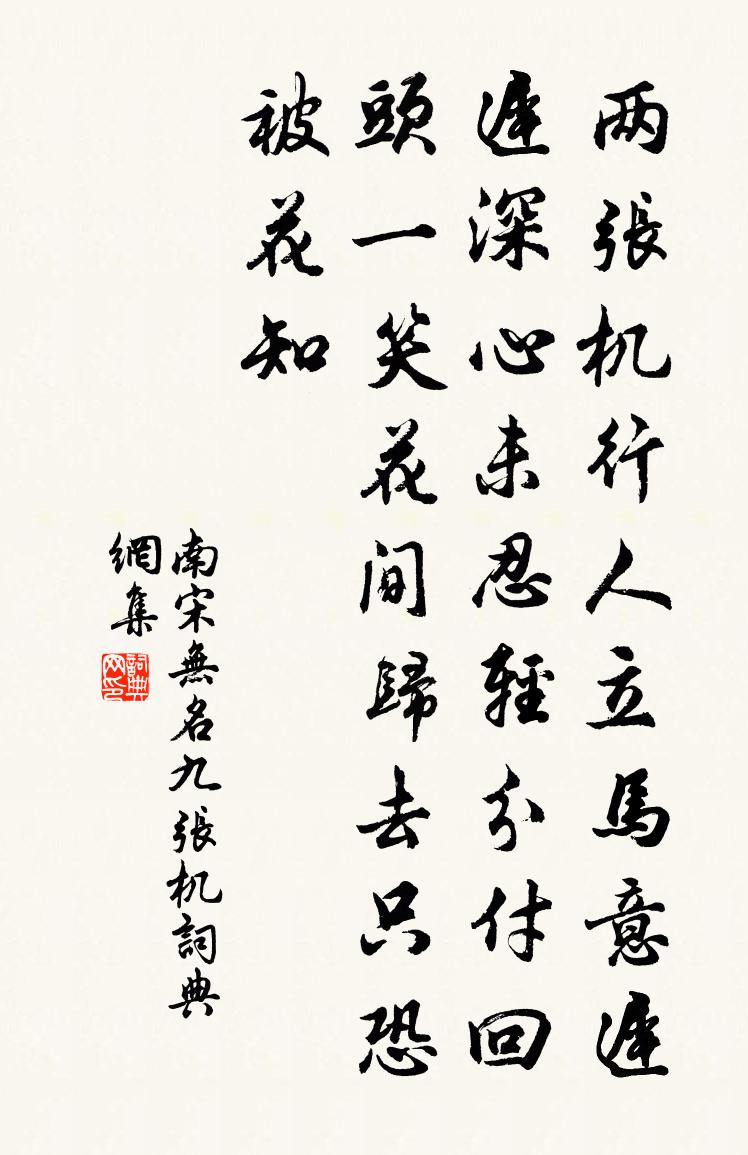 两張机行人立馬意遲
遲深心未忍輕分付回
頭一笑花間歸去只恐
被花知
南宋無名九張机詞典
網集
詞典
网印